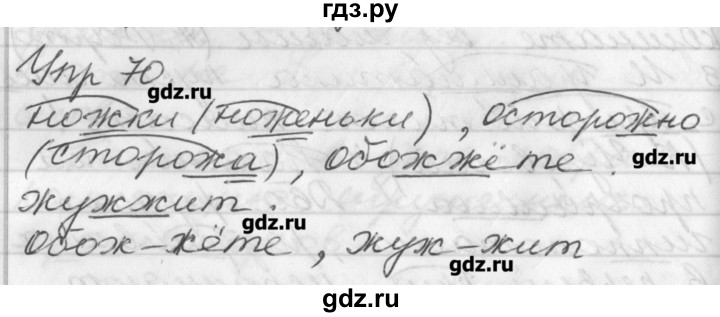 гдз.ру
Упр 70
gdz.ru
ножки (ноженьки), осторожно
(сторожа), обожжёте.
gdz.ru
жужжит.
gdz.ru
обож-жёте, жуж-жит
gdz.ru
gdz.ru